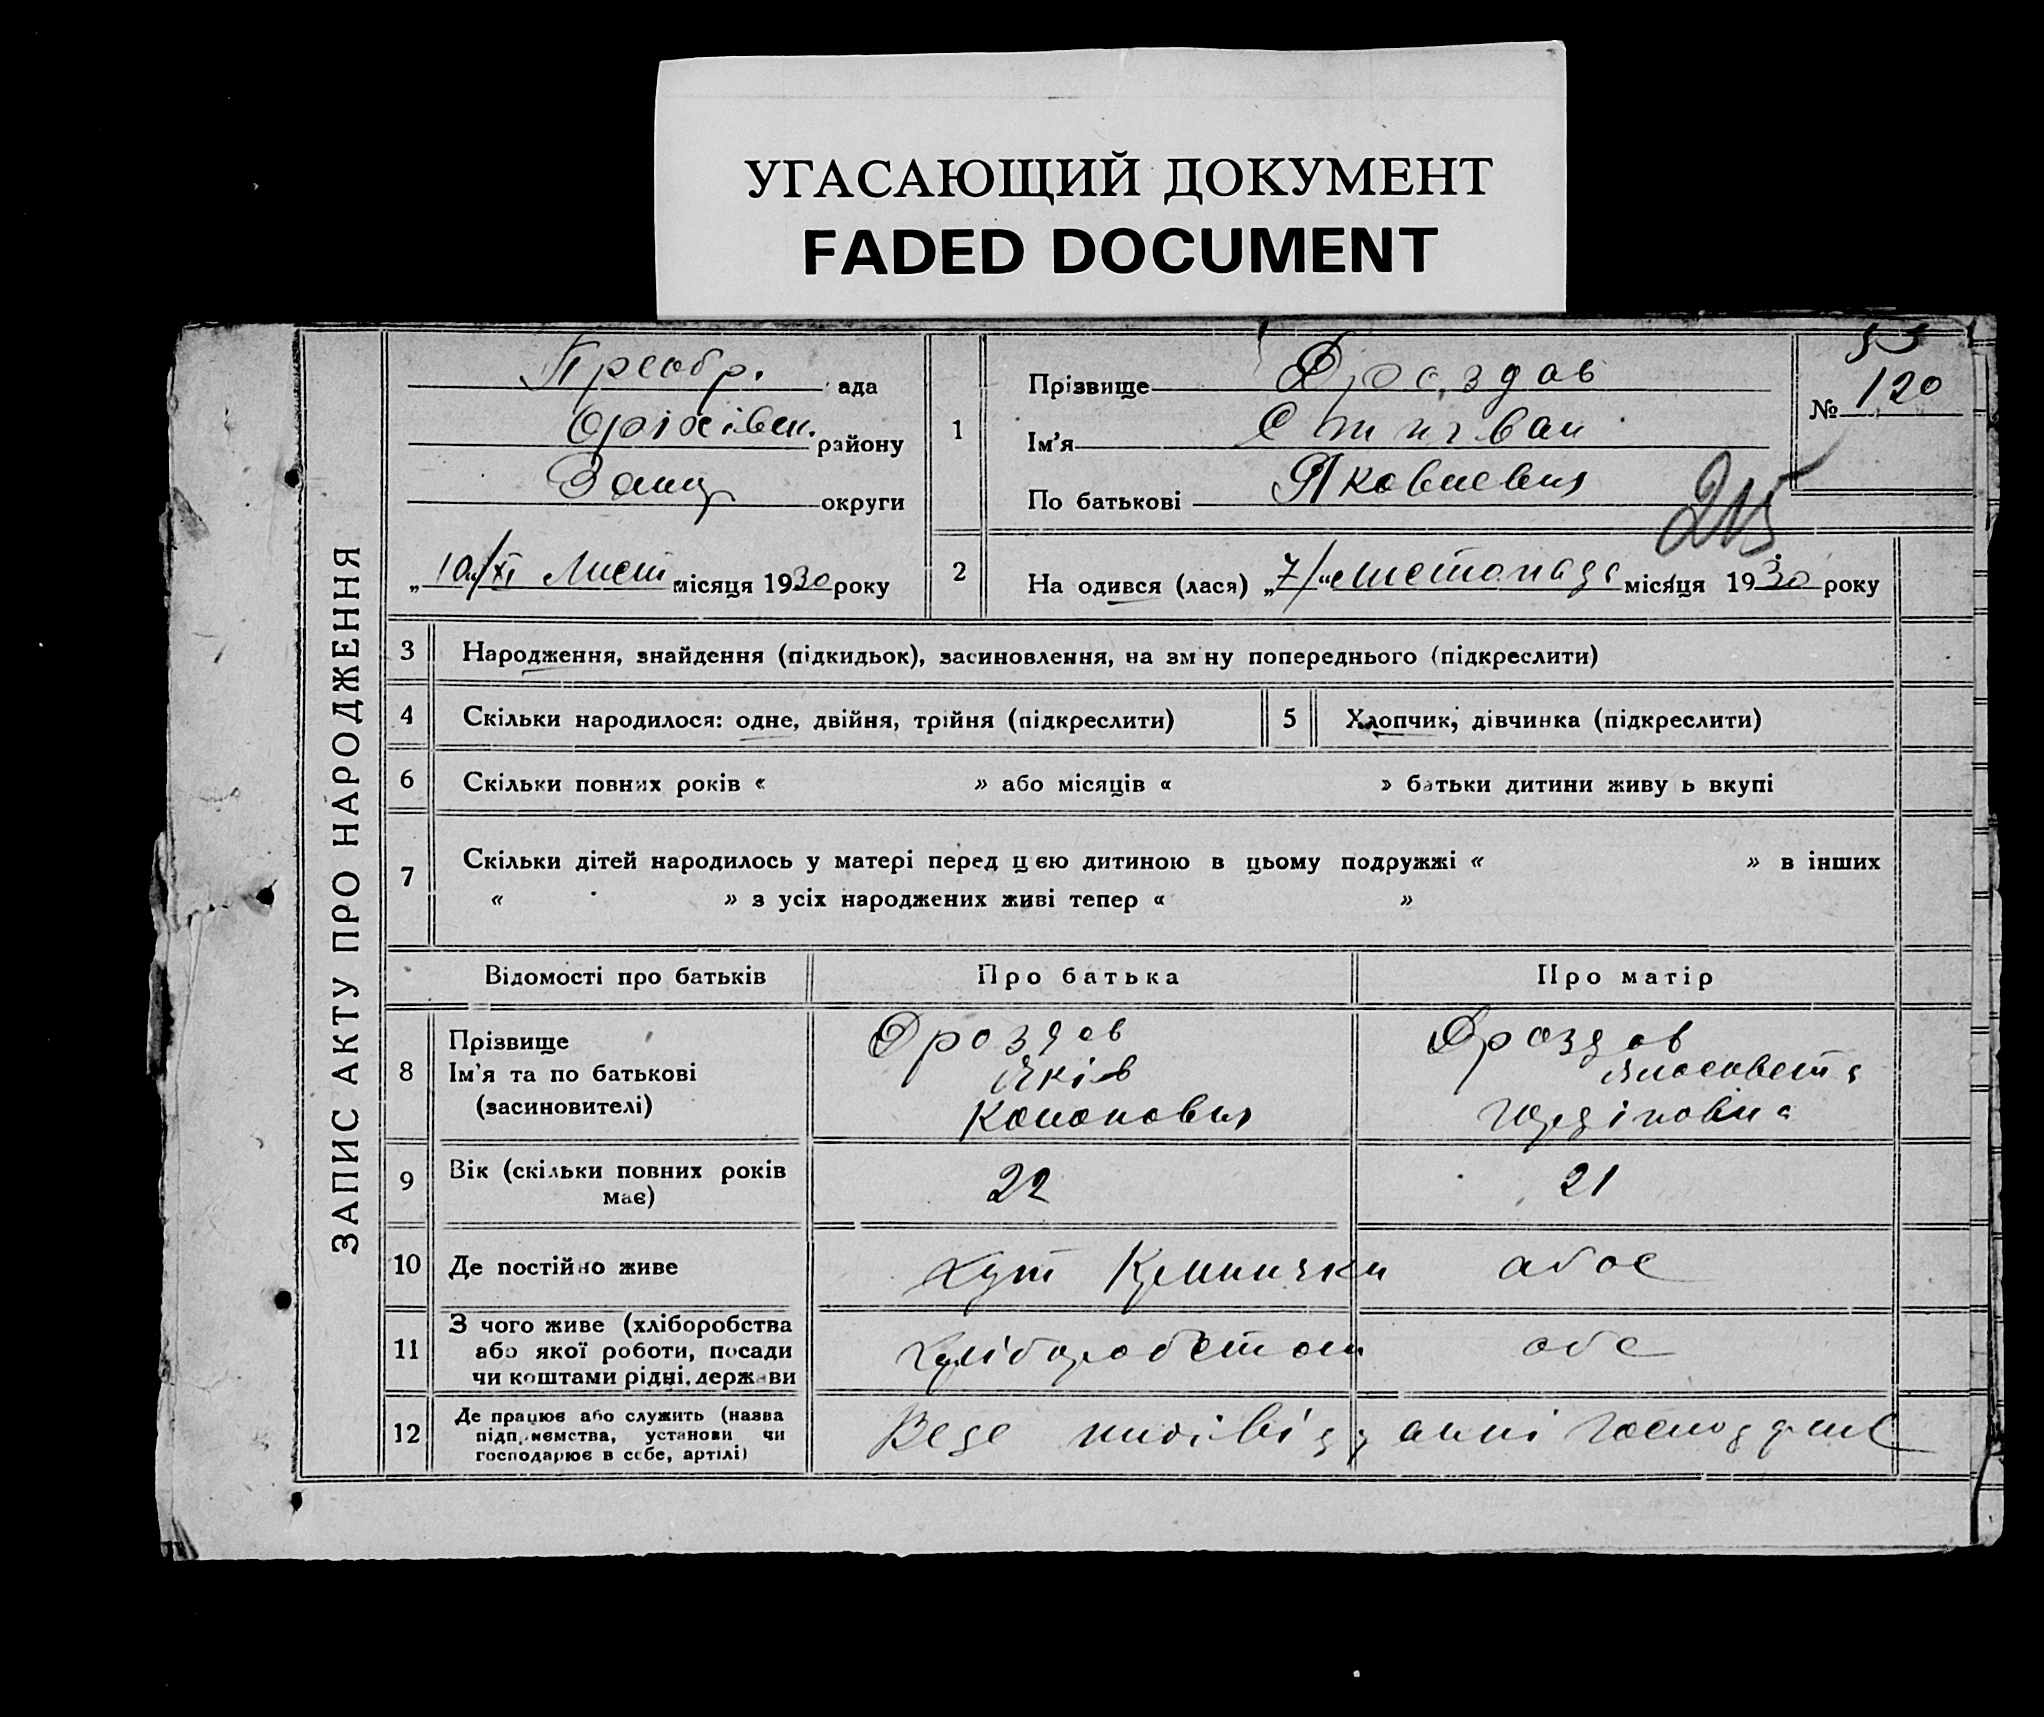 УГАСАЮЩИЙ ДОКУМЕНТ
FADED DOCUMENT
ЗАПИС АКТУ ПРО НАРОДЖЕННЯ
Преобр. ада
Оріхівськ. району
Запор округи
„10/XI Лист місяця 1930 року
53
№ 120
215
1
Прізвище Дроздов
Ім'я
По батькові Яковлевич
2
На одився (лася) „7/ листопада місяця 1930 року
3 Народження, знайдення (підкидьок), засиновлення, на зм ну попереднього (підкреслити)
4 Скільки народилося: одне, двійня, трійня (підкреслити) 5 Хлопчик, дівчинка (підкреслити)
6 Скільки повних років « » або місяців « » батьки дитини живу ь вкупі
7 Скільки дітей народилось у матері перед цею дитиною в цьому подружжі « » в інших
« » з усіх народжених живі тепер « »
Відомості про батьків Про батька Про матір
8 Прізвище Дроздов Дроздов
Ім'я та по батькові Яків
(засиновителі) Кононович
9 Вік (скільки повних років має) 22 21
10 Де постійно живе Хут обое
11 З чого живе (хліборобства
або якої роботи, посади хліборобством обе
чи коштами рідні, держави
12 Де працює або служить (назва
підприємства, установи чи Веде індівідуалні господ
господарює в себе, артілі)